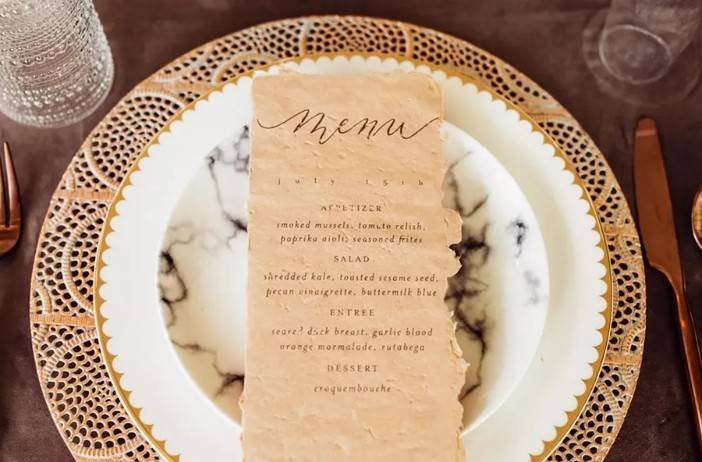 menu
july 15th
APPETIZER
smoked mussels, tomato relish,
paprika aioli, seasoned frites
SALAD
shredded kale, toasted sesame seed,
pecan vinaigrette, buttermilk blue
ENTREE
seared duck breast, garlic blood
orange marmalade, rutabega
DESSERT
croquembouche